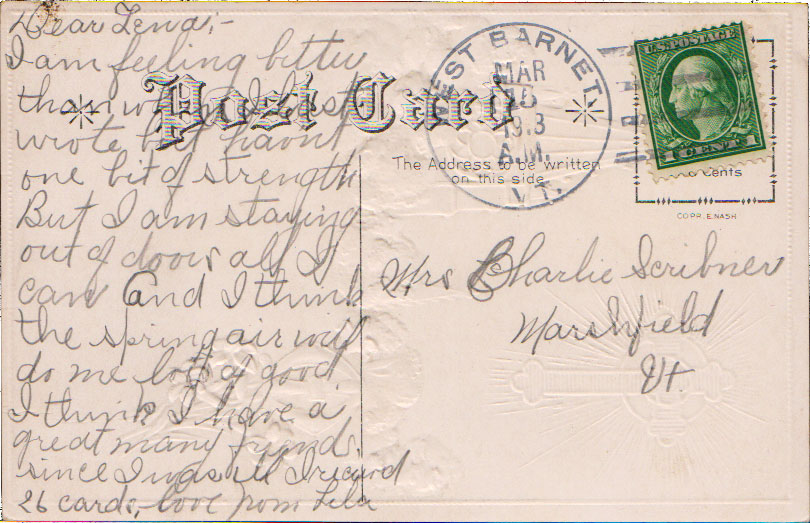 Dear Lena;-
I am feeling better
than when I last
wrote but havnt
one bit of strength
But I am staying
out of doors all I
can And I think
the spring air will
do me lots of good
I think I have a
great many friends
since I was ill I recievd
26 cards, love from Lila
Post Card
The Address to be written
on this side
WEST BARNET
MAR
1913
A.M.
VT.
U.S. POSTAGE
1 CENT 1
Cents
COPR. E. NASH
Mrs Charlie Scribner
Marshfield
Vt.